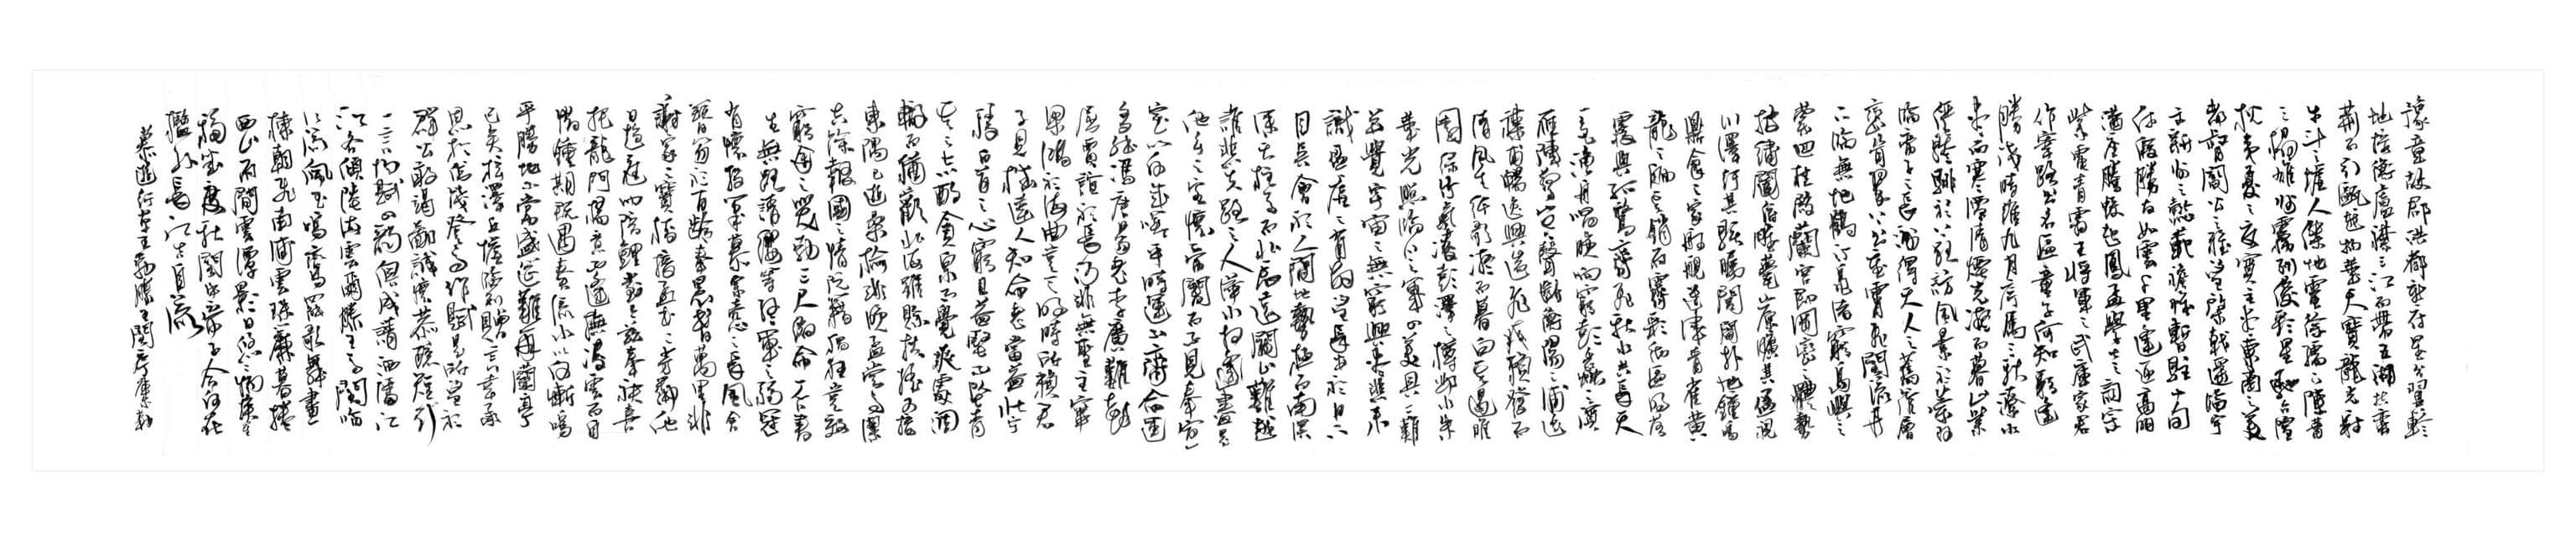 豫章故郡洪都新府星分翼軫
地接衡廬襟三江而帶五湖控蠻
荊而引甌越物華天寶龍光射
牛斗之墟人傑地靈徐孺下陳蕃
之榻雄州霧列俊彩星馳台隍
枕夷夏之交賓主盡東南之美
都督閻公之雅望棨戟遙臨宇
文新州之懿範襜帷暫駐十旬
休暇勝友如雲千里逢迎高朋
滿座騰蛟起鳳孟學士之詞宗
紫電青霜王將軍之武庫家君
作宰路出名區童子何知躬逢
勝餞時維九月序屬三秋潦水
盡而寒潭清煙光凝而暮山紫
儼驂騑於上路訪風景於崇阿
臨帝子之長洲得天人之舊館層
巒聳翠上出重霄飛閣流丹
下臨無地鶴汀鳧渚窮島嶼之
縈迴桂殿蘭宮即岡巒之體勢
披繡闥俯雕甍山原曠其盈視
川澤紆其駭矚閭閻撲地鐘鳴
鼎食之家舸艦迷津青雀黃
龍之舳雲銷雨霽彩徹區明落
霞與孤鶩齊飛秋水共長天
一色漁舟唱晚響窮彭蠡之濱
雁陣驚寒聲斷衡陽之浦遙
襟甫暢逸興遄飛爽籟發而
清風生纖歌凝而白雲遏睢
園綠竹氣凌彭澤之樽鄴水朱
華光照臨川之筆四美具二難
並覺宇宙之無窮興盡悲來
識盈虛之有數望長安於日下
目吳會於雲間地勢極而南溟
深天柱高而北辰遠關山難越
誰悲失路之人萍水相逢盡是
他鄉之客懷帝閽而不見奉宣
室以何年嗟乎時運不齊命途
多舛馮唐易老李廣難封
屈賈誼於長沙非無聖主竄
梁鴻於海曲豈乏明時所賴君
子見機達人知命老當益壯寧
移白首之心窮且益堅不墜青
雲之志酌貪泉而覺爽處涸
轍而猶歡北海雖賒扶搖可接
東隅已逝桑榆非晚孟嘗高潔
空餘報國之情阮籍猖狂豈效
窮途之哭勃三尺微命一介書
生無路請纓等終軍之弱冠
有懷投筆慕宗愨之長風舍
簪笏於百齡奉晨昏於萬里非
謝家之寶樹接孟氏之芳鄰他
日趨庭叨陪鯉對今茲捧袂喜
托龍門楊意不逢撫凌雲而自
惜鍾期既遇奏流水以何慚嗚
乎勝地不常盛筵難再蘭亭
已矣梓澤丘墟臨別贈言幸承
恩於偉餞登高作賦是所望於
群公敢竭鄙誠恭疏短引
一言均賦四韻俱成請洒潘江
各傾陸海云爾滕王高閣臨
江渚佩玉鳴鸞罷歌舞畫
棟朝飛南浦雲珠簾暮捲
西山雨閒雲潭影日悠悠物換星
移幾度秋閣中帝子今何在
檻外長江空自流
慕進行草王勃滕王閣序